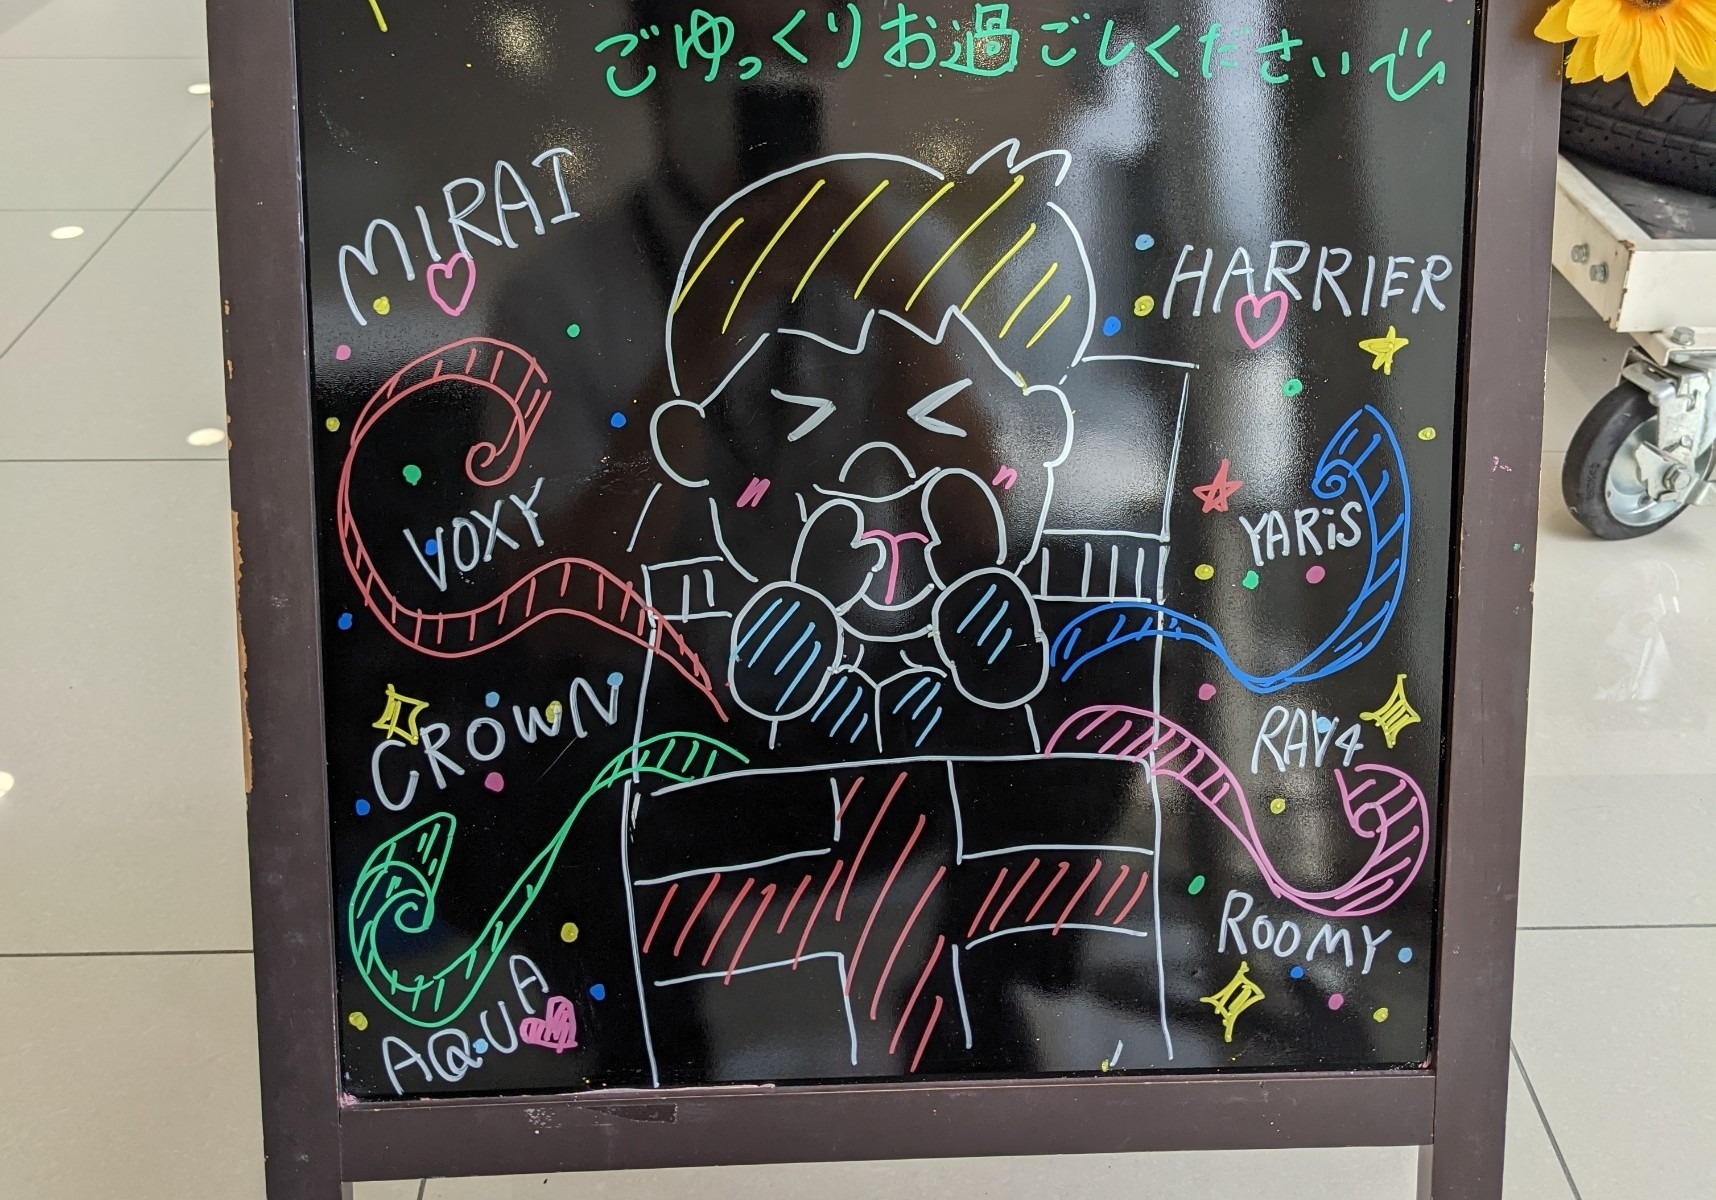 ごゆっくりお過ごしください
MIRAI
HARRIER
VOXY
YARiS
CROWN
RAV4
ROOMY
AQUA